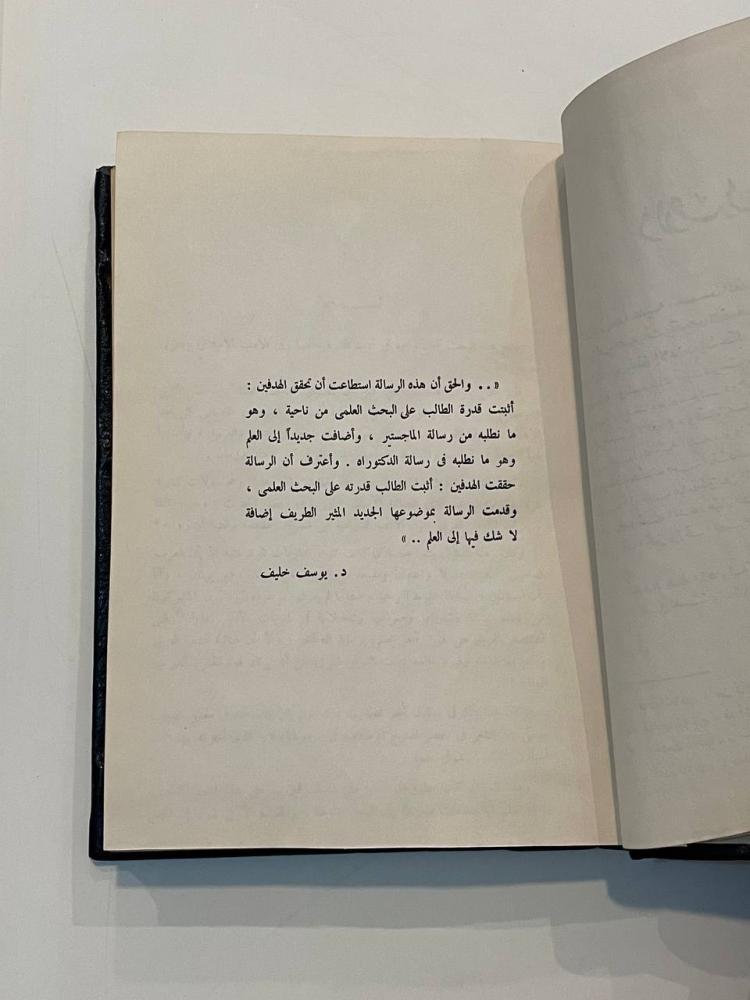 « . . والحق أن هذه الرسالة استطاعت أن تحقق الهدفين :
أثبتت قدرة الطالب على البحث العلمى من ناحية ، وهو
ما نطلبه من رسالة الماجستير ، وأضافت جديداً إلى العلم
وهو ما نطلبه فى رسالة الدكتوراه . وأعترف أن الرسالة
حققت الهدفين : أثبت الطالب قدرته على البحث العلمى ،
وقدمت الرسالة بموضوعها الجديد المثير الطريف إضافة
لا شك فيها إلى العلم .. »
د. يوسف خليف